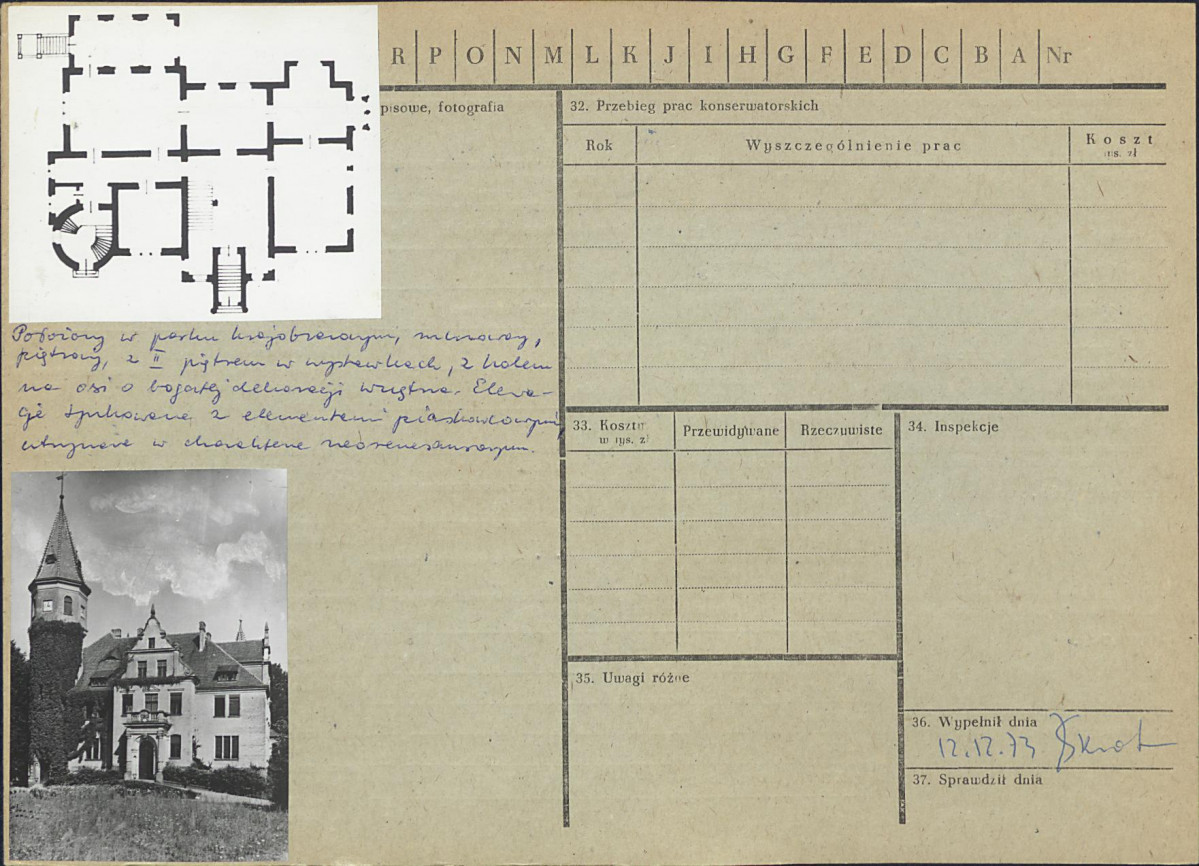 R P O N M L K J I H G F E D C B A Nr
pisowe, fotografia
32. Przebieg prac konserwatorskich
Rok
Wyszczególnienie prac
Koszt
tys. zł
Położony w parku krajobrazowym, murowany,
piętrowy, z II piętrem w wystawkach, z holem
na osi o bogatej dekoracji wnętrza. Elewa-
cje tynkowane z elementami piaskowcowymi,
utrzymane w charakterze neorenesansowym.
33. Koszty
w tys. zł
Przewidywane
Rzeczywiste
34. Inspekcje
35. Uwagi różne
36. Wypełnił dnia
12.12.73
37. Sprawdził dnia